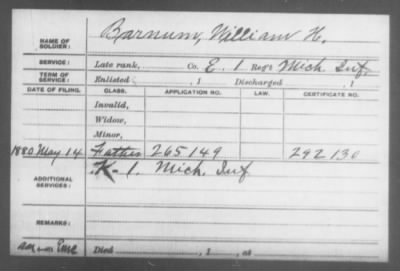 NAME OF SOLDIER: Barnum, William H.
SERVICE: Late rank, Co. E. 1 Reg't Mich. Inf.
TERM OF SERVICE: Enlisted , 1 Discharged , 1
DATE OF FILING. CLASS. APPLICATION NO. LAW. CERTIFICATE NO.
Invalid,
Widow,
Minor,
1880 May 14 Father 265149 292130
ADDITIONAL SERVICES: K-1. Mich. Inf
REMARKS:
Died , 1 , at